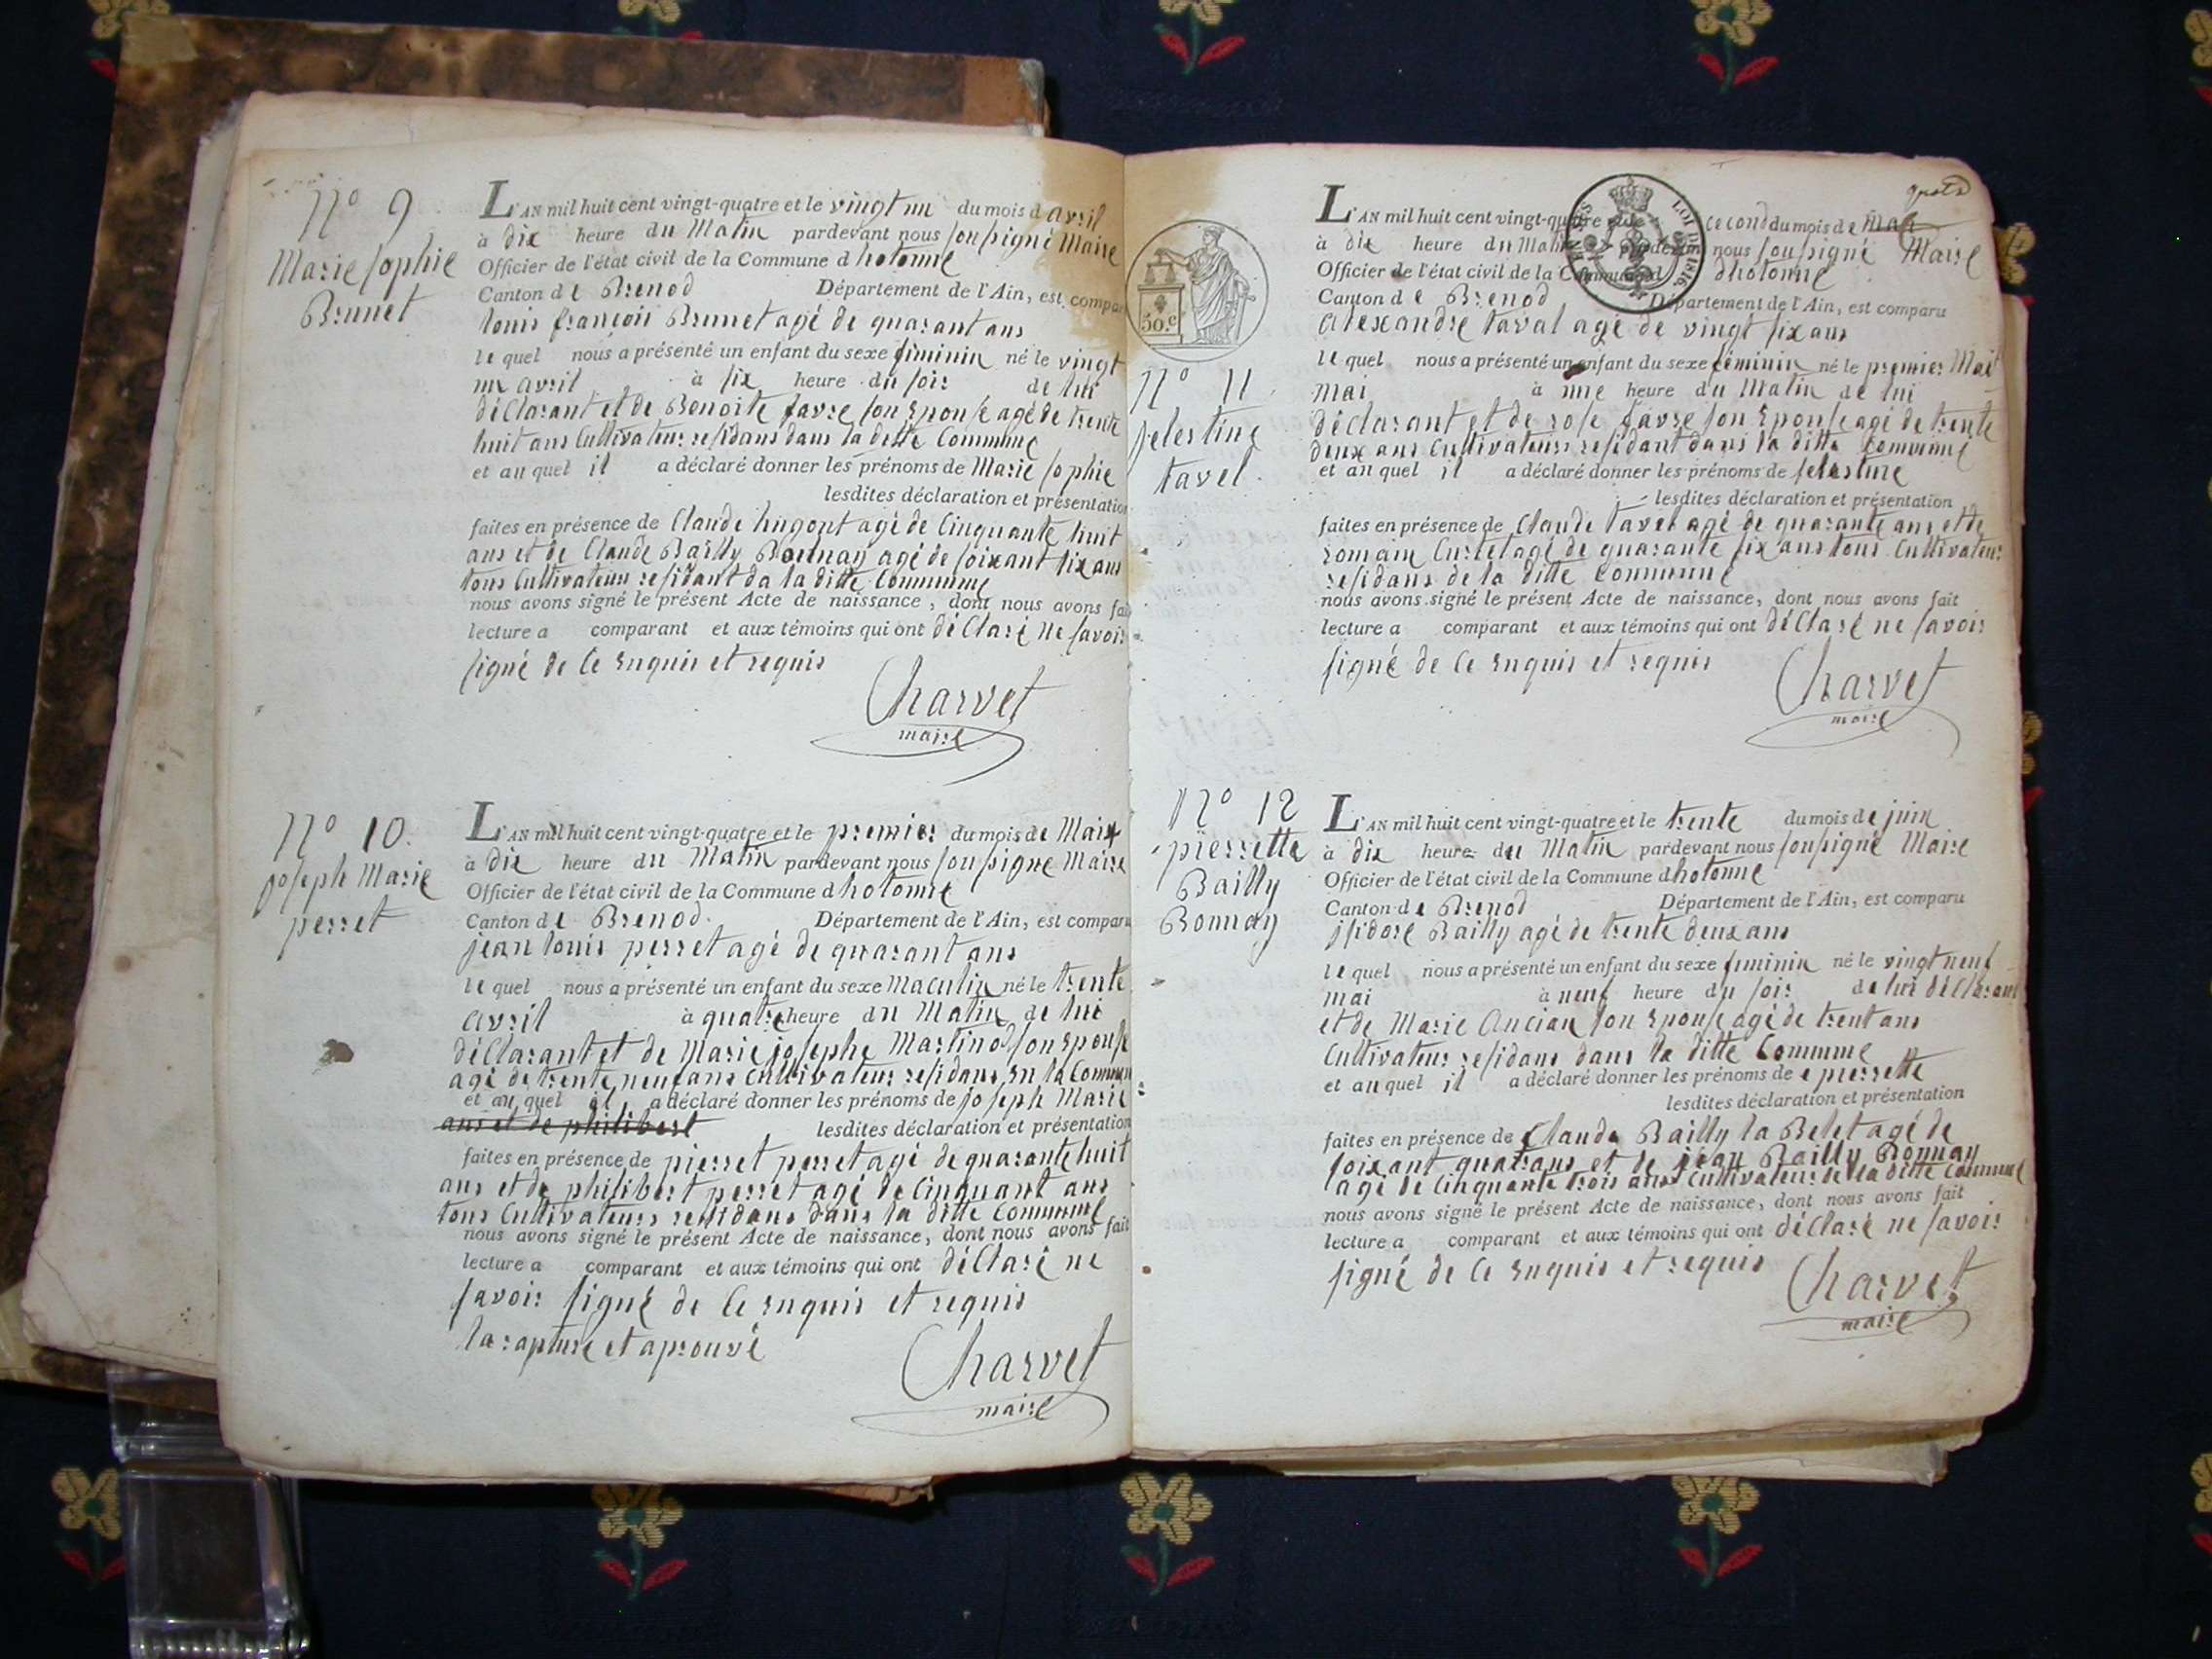 N° 9
Marie Sophie
Brunet
L'AN mil huit cent vingt-quatre et le vingt un du mois d avril
à dix heure du Matin pardevant nous soussigné Maire
Officier de l'état civil de la Commune d hotonne
Canton de Brenod Département de l'Ain, est compar
louis françois Brunet agé de quarant ans
le quel nous a présenté un enfant du sexe féminin né le vingt
un avril à six heure du soir de lui
déclarant et de Benoite favre son Epouse agé de trente
huit ans Cultivateur residans dans la ditte Commune
et au quel il a déclaré donner les prénoms de Marie Sophie
lesdites déclaration et présentation
faites en présence de Claude hugont agé de Cinquante huit
ans et de Claude Bailly Bonnay agé de soixant six ans
tous Cultivateur residant da la ditte Commune
nous avons signé le présent Acte de naissance, dont nous avons fai
lecture a comparant et aux témoins qui ont déclaré ne savoir
signé de Ce Enquis et requis
Charvet
maire
N° 10.
joseph Marie
perret
L'AN mil huit cent vingt-quatre et le premier du mois de Mai
à dix heure du Matin pardevant nous soussigné Maire
Officier de l'état civil de la Commune d hotonne
Canton de Brenod. Département de l'Ain, est comparu
jean louis perret agé de quarant ans
le quel nous a présenté un enfant du sexe Maculin né le trente
avril à quatre heure du Matin de lui
déclarant et de Marie josephe Martinod son Epouse
agé de trente neuf ans Cultivateur residans En la Commun
et au quel il a déclaré donner les prénoms de joseph Marie
ans et de philibert lesdites déclaration et présentation
faites en présence de pierret perret agé de quarante huit
ans et de philibert perret agé de Cinquant ans
tous Cultivateurs residans dans la ditte Commune
nous avons signé le présent Acte de naissance, dont nous avons fait
lecture a comparant et aux témoins qui ont déclaré ne
savoir signé de Ce Enquis et requis
la rapture et aprouvé
Charvet
maire
LOI DE 1816.
50.c
N° 11
selestine
tavel
L'AN mil huit cent vingt-quatre et le cecond du mois de Mai
à dix heure du Matin pardevan nous soussigné Maire
Officier de l'état civil de la Commune d dhotonne
Canton de Brenod Département de l'Ain, est comparu
alexandre taval agé de vingt six ans
le quel nous a présenté un enfant du sexe féminin né le premier Mai
mai à une heure du Matin de lui
déclarant et de rose favre son Epouse agé de trente
deux ans Cultivateurs residant dans la ditte Commune
et au quel il a déclaré donner les prénoms de selestine
lesdites déclaration et présentation
faites en présence de Claude tavel agé de quarante ans et de
romain Curtet agé de quarante six ans tous Cultivateur
residans de la ditte Commune
nous avons signé le présent Acte de naissance, dont nous avons fait
lecture a comparant et aux témoins qui ont déclaré ne savoir
signé de Ce Enquis et requis
Charvet
maire
N° 12
pierrette
Bailly
Bonnay
L'AN mil huit cent vingt-quatre et le trente du mois de juin
à dix heure du Matin pardevant nous soussigné Maire
Officier de l'état civil de la Commune dhotonne
Canton de Brenod Département de l'Ain, est comparu
jsidore Bailly agé de trente deux ans
le quel nous a présenté un enfant du sexe feminin né le vingt neuf
mai à neuf heure du soir de lui déclarant
et de Marie Ancian son Epouse agé de trent ans
Cultivateur residans dans la ditte Commune
et au quel il a déclaré donner les prénoms de pierrette
lesdites déclaration et présentation
faites en présence de Claude Bailly la Belet agé de
soixant quatrans et de jean Bailly Bonnay
agé de Cinquante trois ans Cultivateur de la ditte Commune
nous avons signé le présent Acte de naissance, dont nous avons fait
lecture a comparant et aux témoins qui ont déclaré ne savoir
signé de Ce Enquis et requis
Charvet
maire